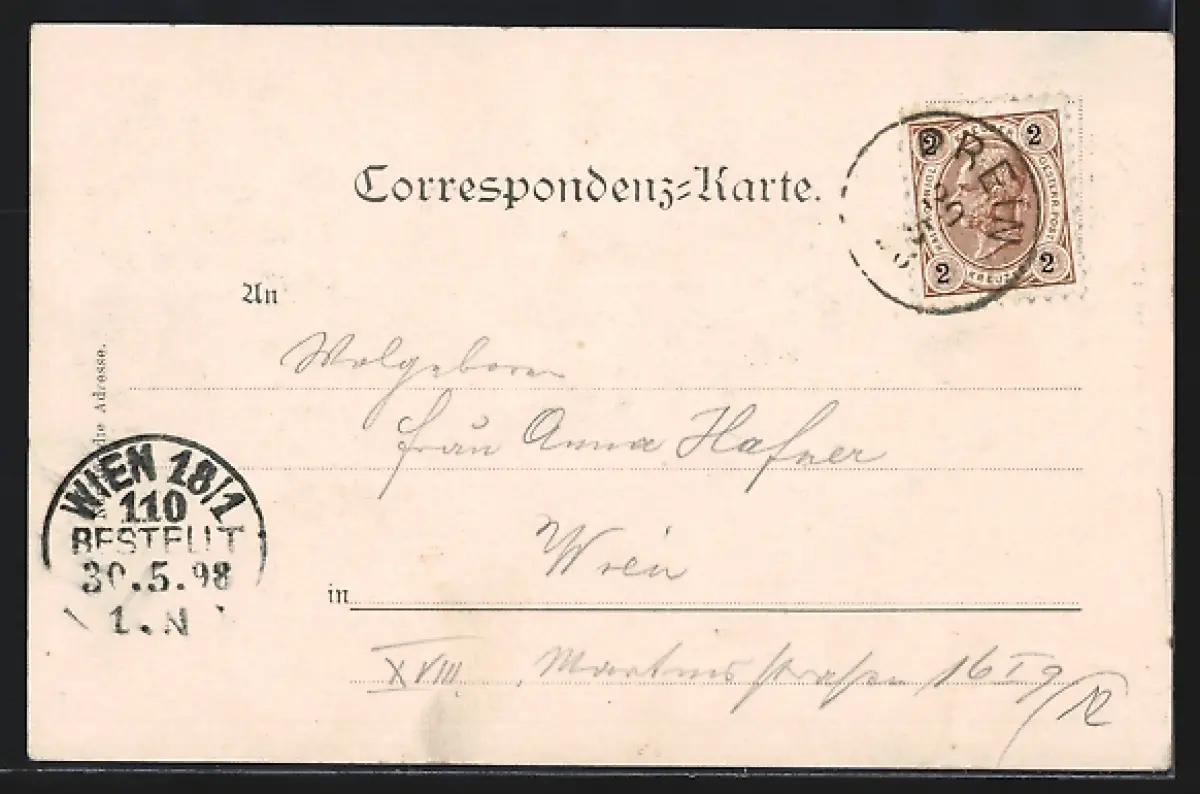 Correspondenz-Karte.
2 2
KREUZER
ÖSTERR. POST
2 2
PREIN
An
Wolgeboren
Frau Anna Hafner
die Adresse.
WIEN 18/1
110
BESTELLT
30.5.98
1.N
Wien
in
XVIII. Martinsstraßen 16 I 9